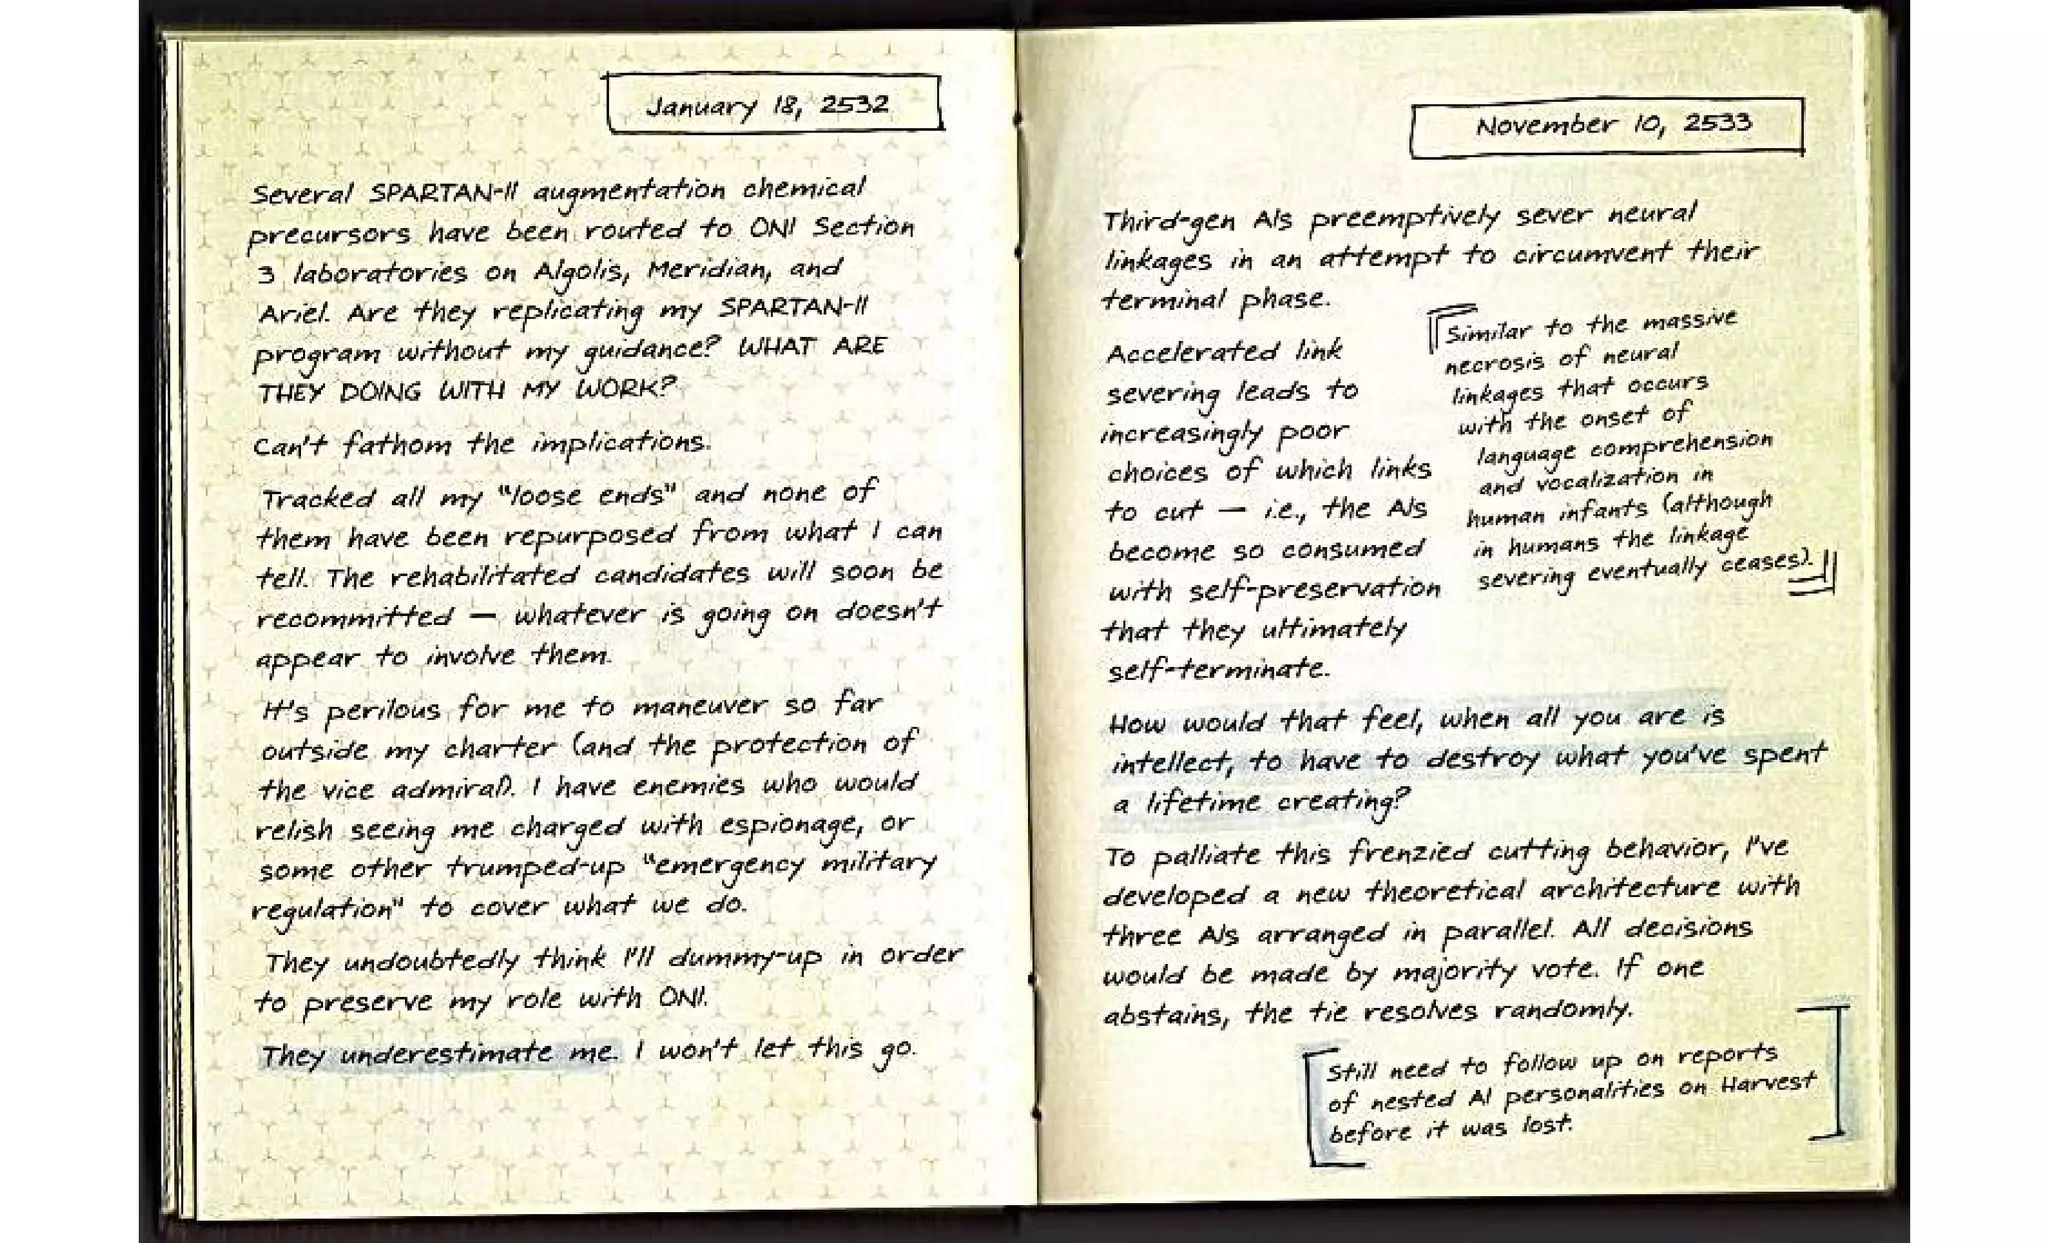 January 18, 2532
Several SPARTAN-II augmentation chemical
precursors have been routed to ONI Section
3 laboratories on Algolis, Meridian, and
Ariel. Are they replicating my SPARTAN-II
program without my guidance? WHAT ARE
THEY DOING WITH MY WORK?
Can't fathom the implications.
Tracked all my "loose ends" and none of
them have been repurposed from what I can
tell. The rehabilitated candidates will soon be
recommitted — whatever is going on doesn't
appear to involve them.
It's perilous for me to maneuver so far
outside my charter (and the protection of
the vice admiral). I have enemies who would
relish seeing me charged with espionage, or
some other trumped-up "emergency military
regulation" to cover what we do.
They undoubtedly think I'll dummy-up in order
to preserve my role with ONI.
They underestimate me. I won't let this go.
November 10, 2533
Third-gen AIs preemptively sever neural
linkages in an attempt to circumvent their
terminal phase.
Accelerated link
severing leads to
increasingly poor
choices of which links
to cut — i.e., the AIs
become so consumed
with self-preservation
that they ultimately
self-terminate.
Similar to the massive
necrosis of neural
linkages that occurs
with the onset of
language comprehension
and vocalization in
human infants (although
in humans the linkage
severing eventually ceases).
How would that feel, when all you are is
intellect, to have to destroy what you've spent
a lifetime creating?
To palliate this frenzied cutting behavior, I've
developed a new theoretical architecture with
three AIs arranged in parallel. All decisions
would be made by majority vote. If one
abstains, the tie resolves randomly.
Still need to follow up on reports
of nested AI personalities on Harvest
before it was lost.